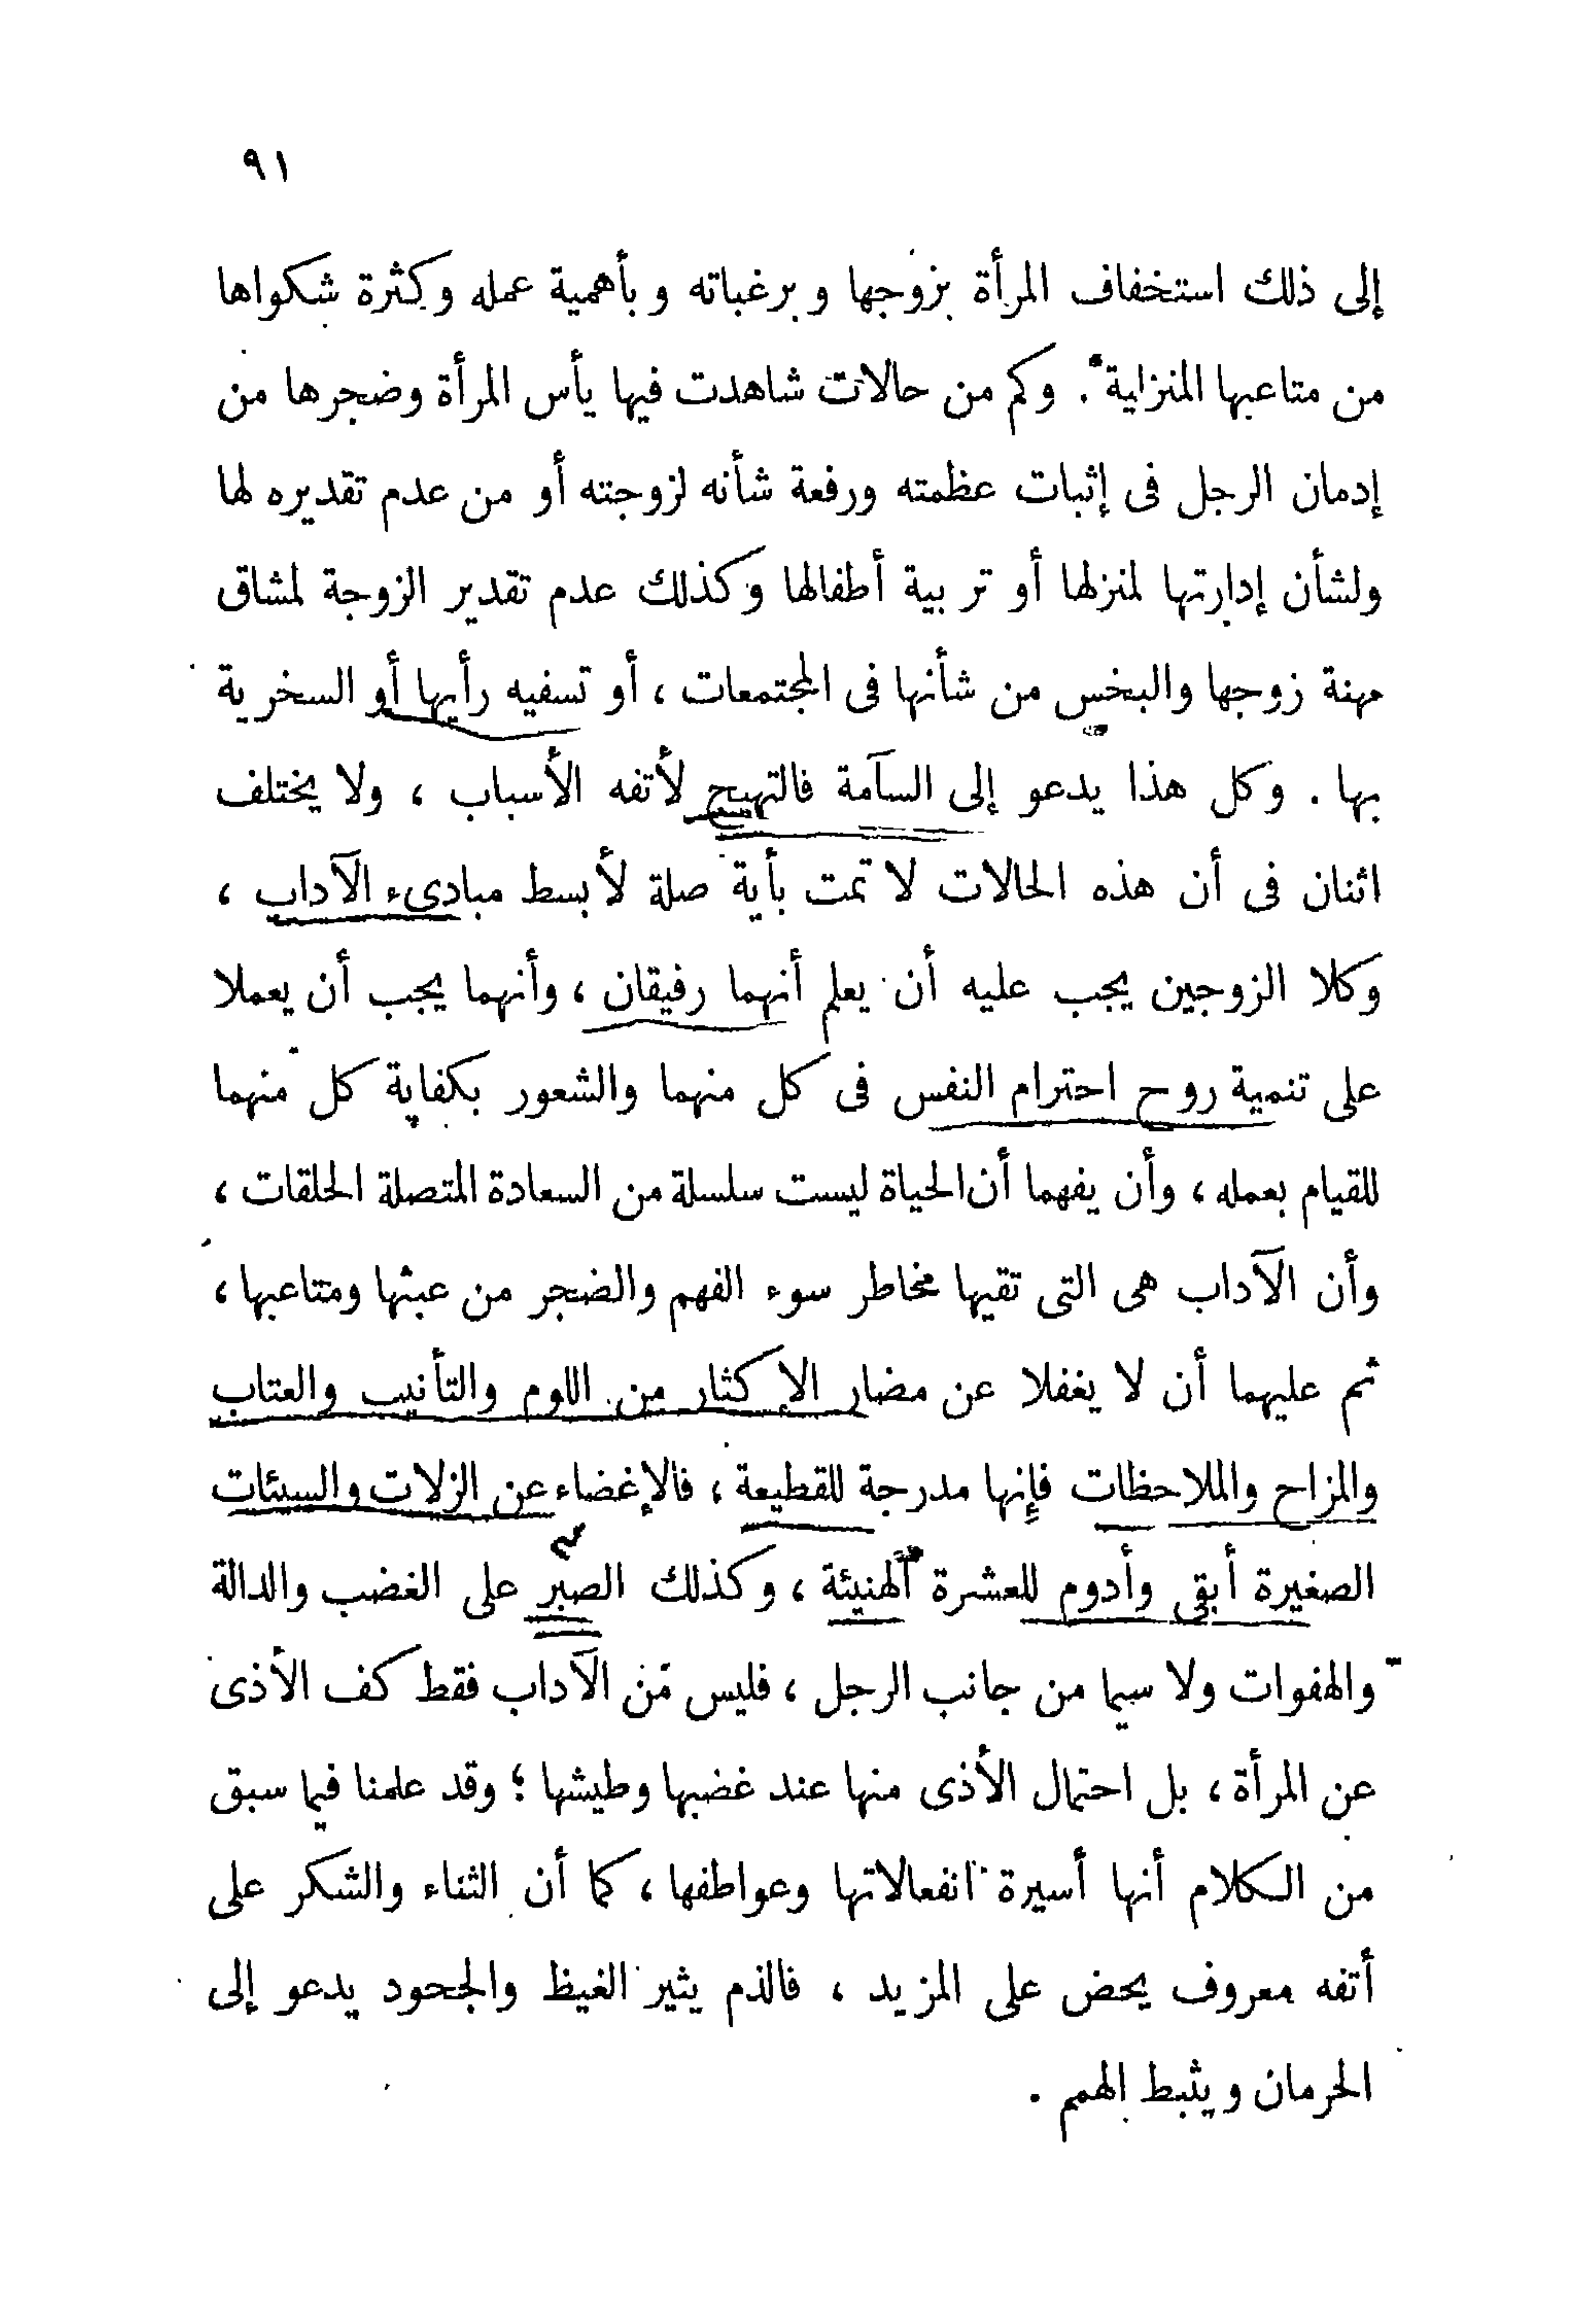 ٩١
إلى ذلك استخفاف المرأة بزوجها وبرغباته وبأهمية عمله وكثرة شكواها
من متاعبها المنزلية . وكم من حالات شاهدت فيها يأس المرأة وضجرها من
إدمان الرجل فى إثبات عظمته ورفعة شأنه لزوجته أو من عدم تقديره لها
ولشأن إدارتها لمنزلها أو تربية أطفالها وكذلك عدم تقدير الزوجة لمشاق
مهنة زوجها والبخس من شأنها فى المجتمعات ، أو تسفيه رأيها أو السخرية
بها . وكل هذا يدعو إلى السآمة فالتهيج لأتفه الأسباب ، ولا يختلف
اثنان فى أن هذه الحالات لا تمت بأية صلة لأبسط مبادىء الآداب ،
وكلا الزوجين يجب عليه أن يعلم أنهما رفيقان ، وأنهما يجب أن يعملا
على تنمية روح احترام النفس فى كل منهما والشعور بكفاية كل منهما
للقيام بعمله ، وأن يفهما أن الحياة ليست سلسلة من السعادة المتصلة الحلقات ،
وأن الآداب هى التى تقيها مخاطر سوء الفهم والضجر من عبثها ومتاعبها ،
ثم عليهما أن لا يغفلا عن مضار الإكثار من اللوم والتأنيب والعتاب
والمزاح والملاحظات فإنها مدرجة للقطيعة ، فالإغضاء عن الزلات والسيئات
الصغيرة أبقى وأدوم للعشرة الهنيئة ، وكذلك الصبر على الغضب والدالة
والهفوات ولا سيما من جانب الرجل ، فليس من الآداب فقط كف الأذى
عن المرأة ، بل احتمال الأذى منها عند غضبها وطيشها ؛ وقد علمنا فيما سبق
من الكلام أنها أسيرة انفعالاتها وعواطفها ، كما أن الثناء والشكر على
أتفه معروف يحض على المزيد ، فالذم يثير الغيظ والجحود يدعو إلى
الحرمان ويثبط الهمم .